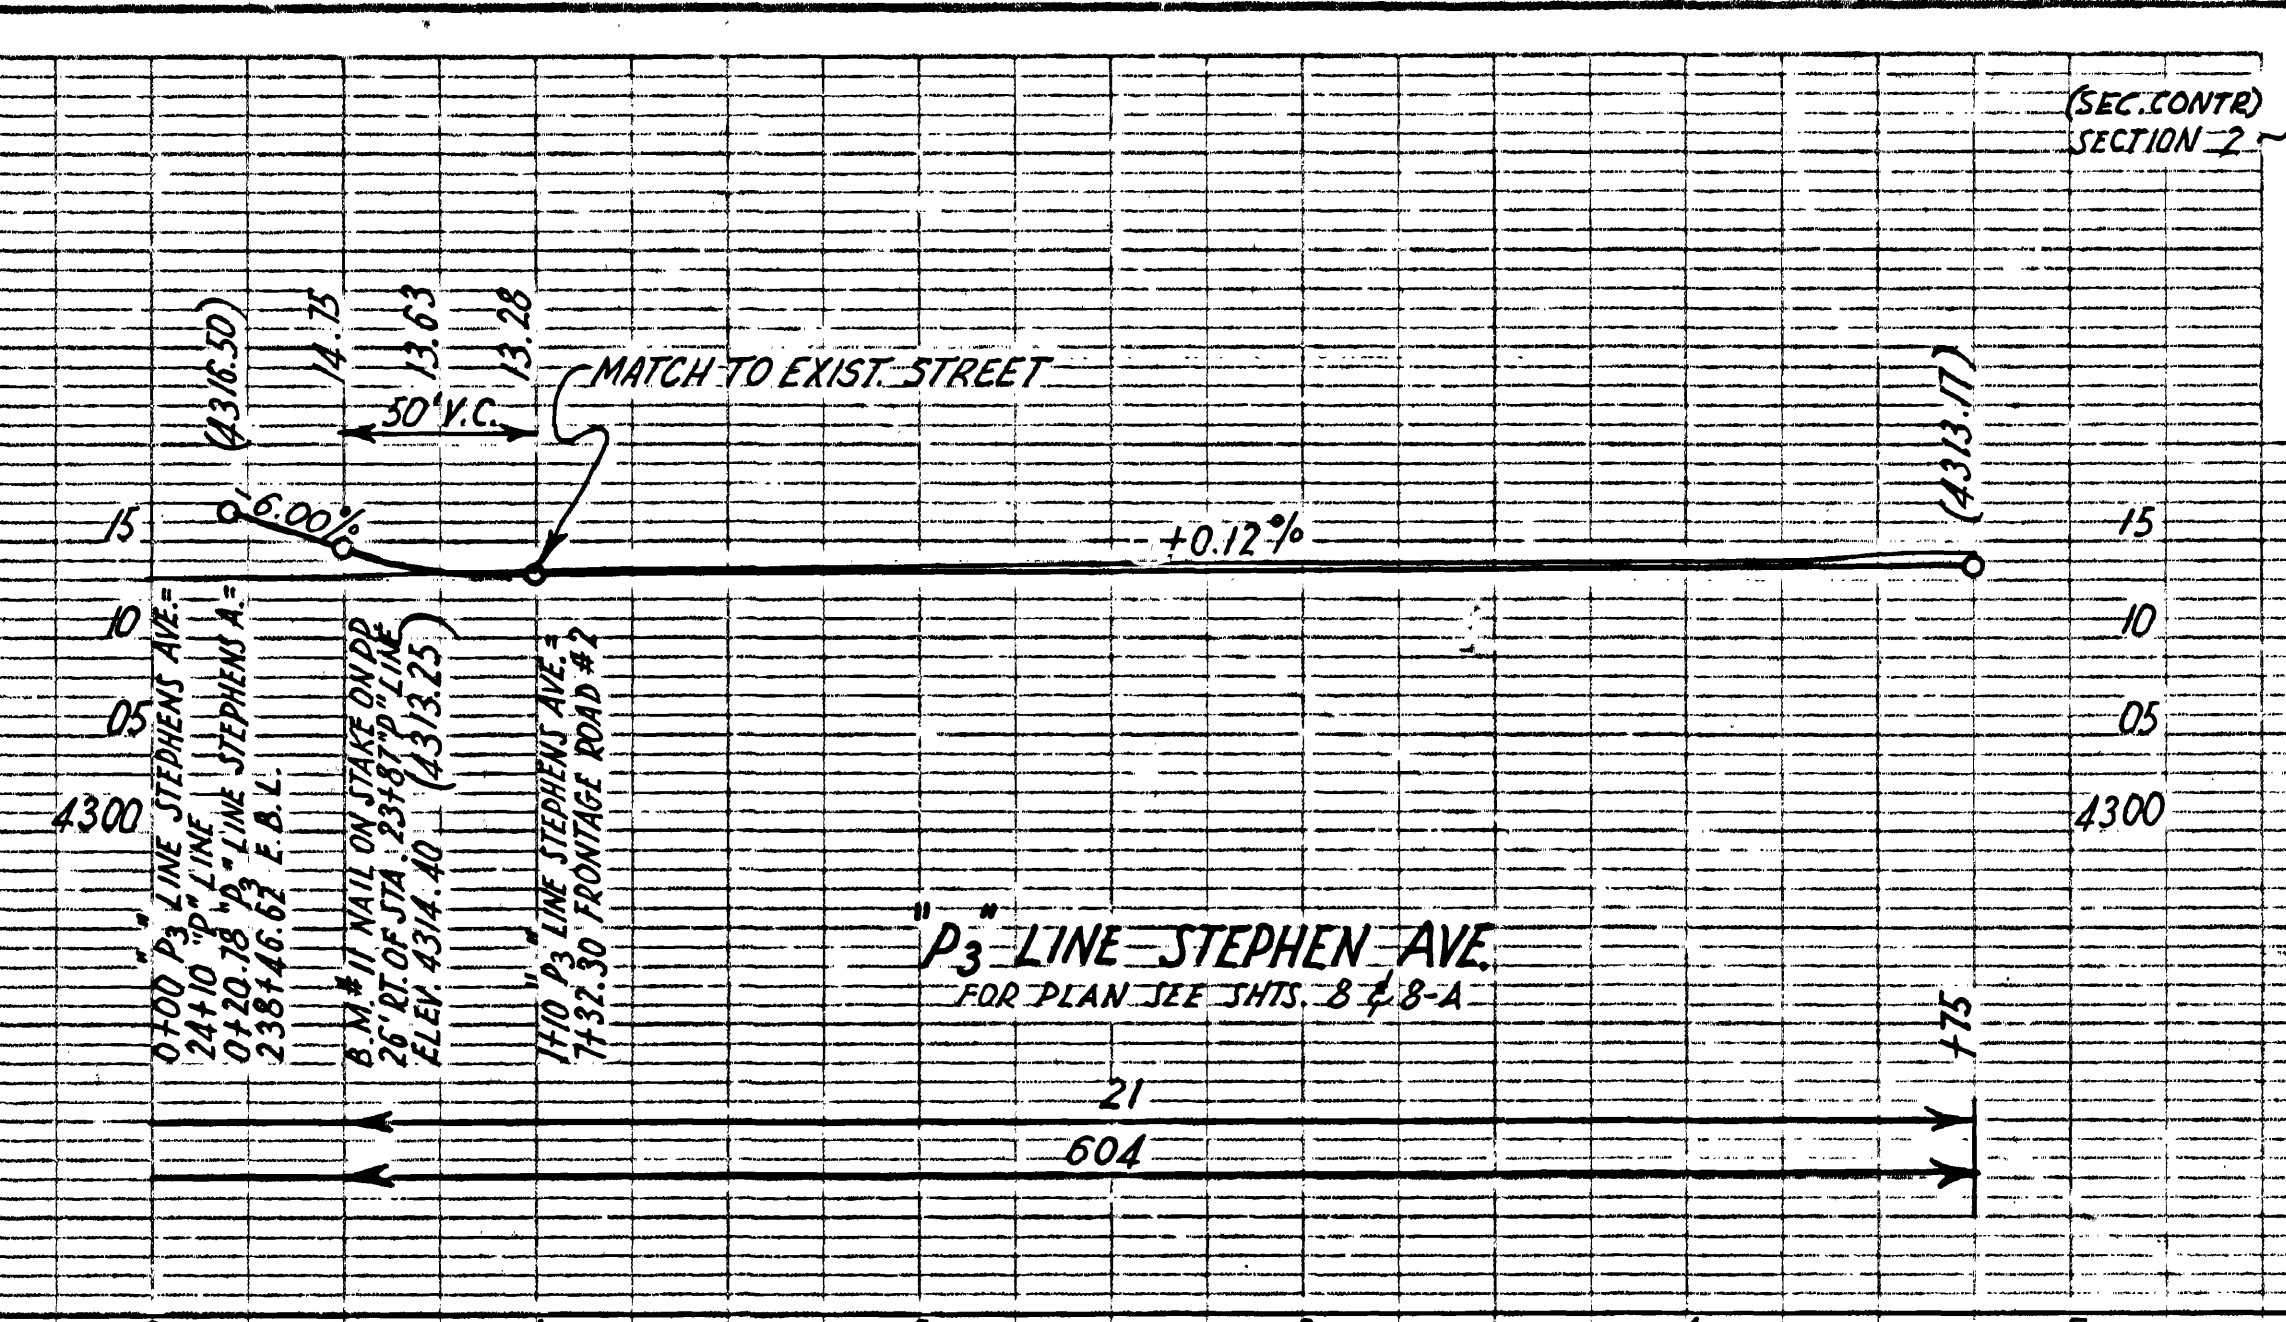 (SEC. CONTR)
SECTION 2 ~
(4316.50)
14.75
13.63
13.28
MATCH TO EXIST. STREET
50' V.C.
(4313.17)
6.00%
+0.12%
15
15
10
10
05
05
4300
4300
0+00 "P3" LINE STEPHENS AVE.=
24+10 "P" LINE
0+20.78 "P3" LINE STEPHENS A.=
238+46.62 E.B.L.
B.M.# 11 NAIL ON STAKE ON PP
26' RT. OF STA. 23+87 "P" LINE
ELEV. 4314.40 (4313.25)
1+10 "P3" LINE STEPHENS AVE.=
7+32.30 FRONTAGE ROAD #2
"P3" LINE STEPHEN AVE.
FOR PLAN SEE SHTS. 8 & 8-A
+75
21
604